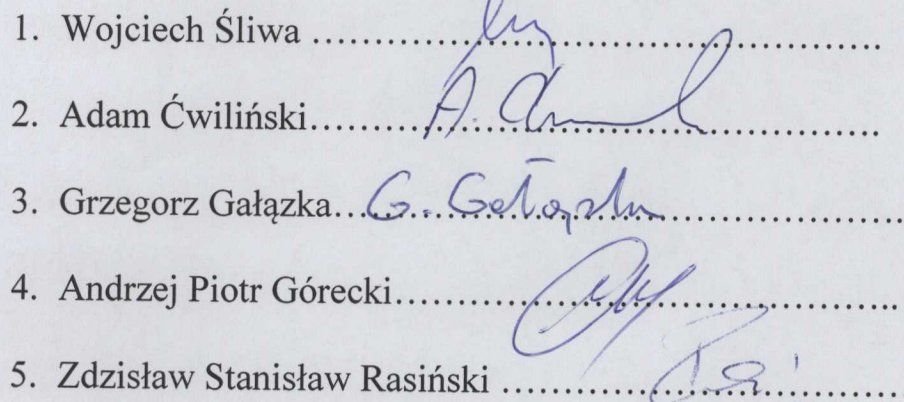 1. Wojciech Śliwa ...............................................................
2. Adam Ćwiliński............A. ...............................................
3. Grzegorz Gałązka...G. Gałązka..............................
4. Andrzej Piotr Górecki.......................................................
5. Zdzisław Stanisław Rasiński ...........................................